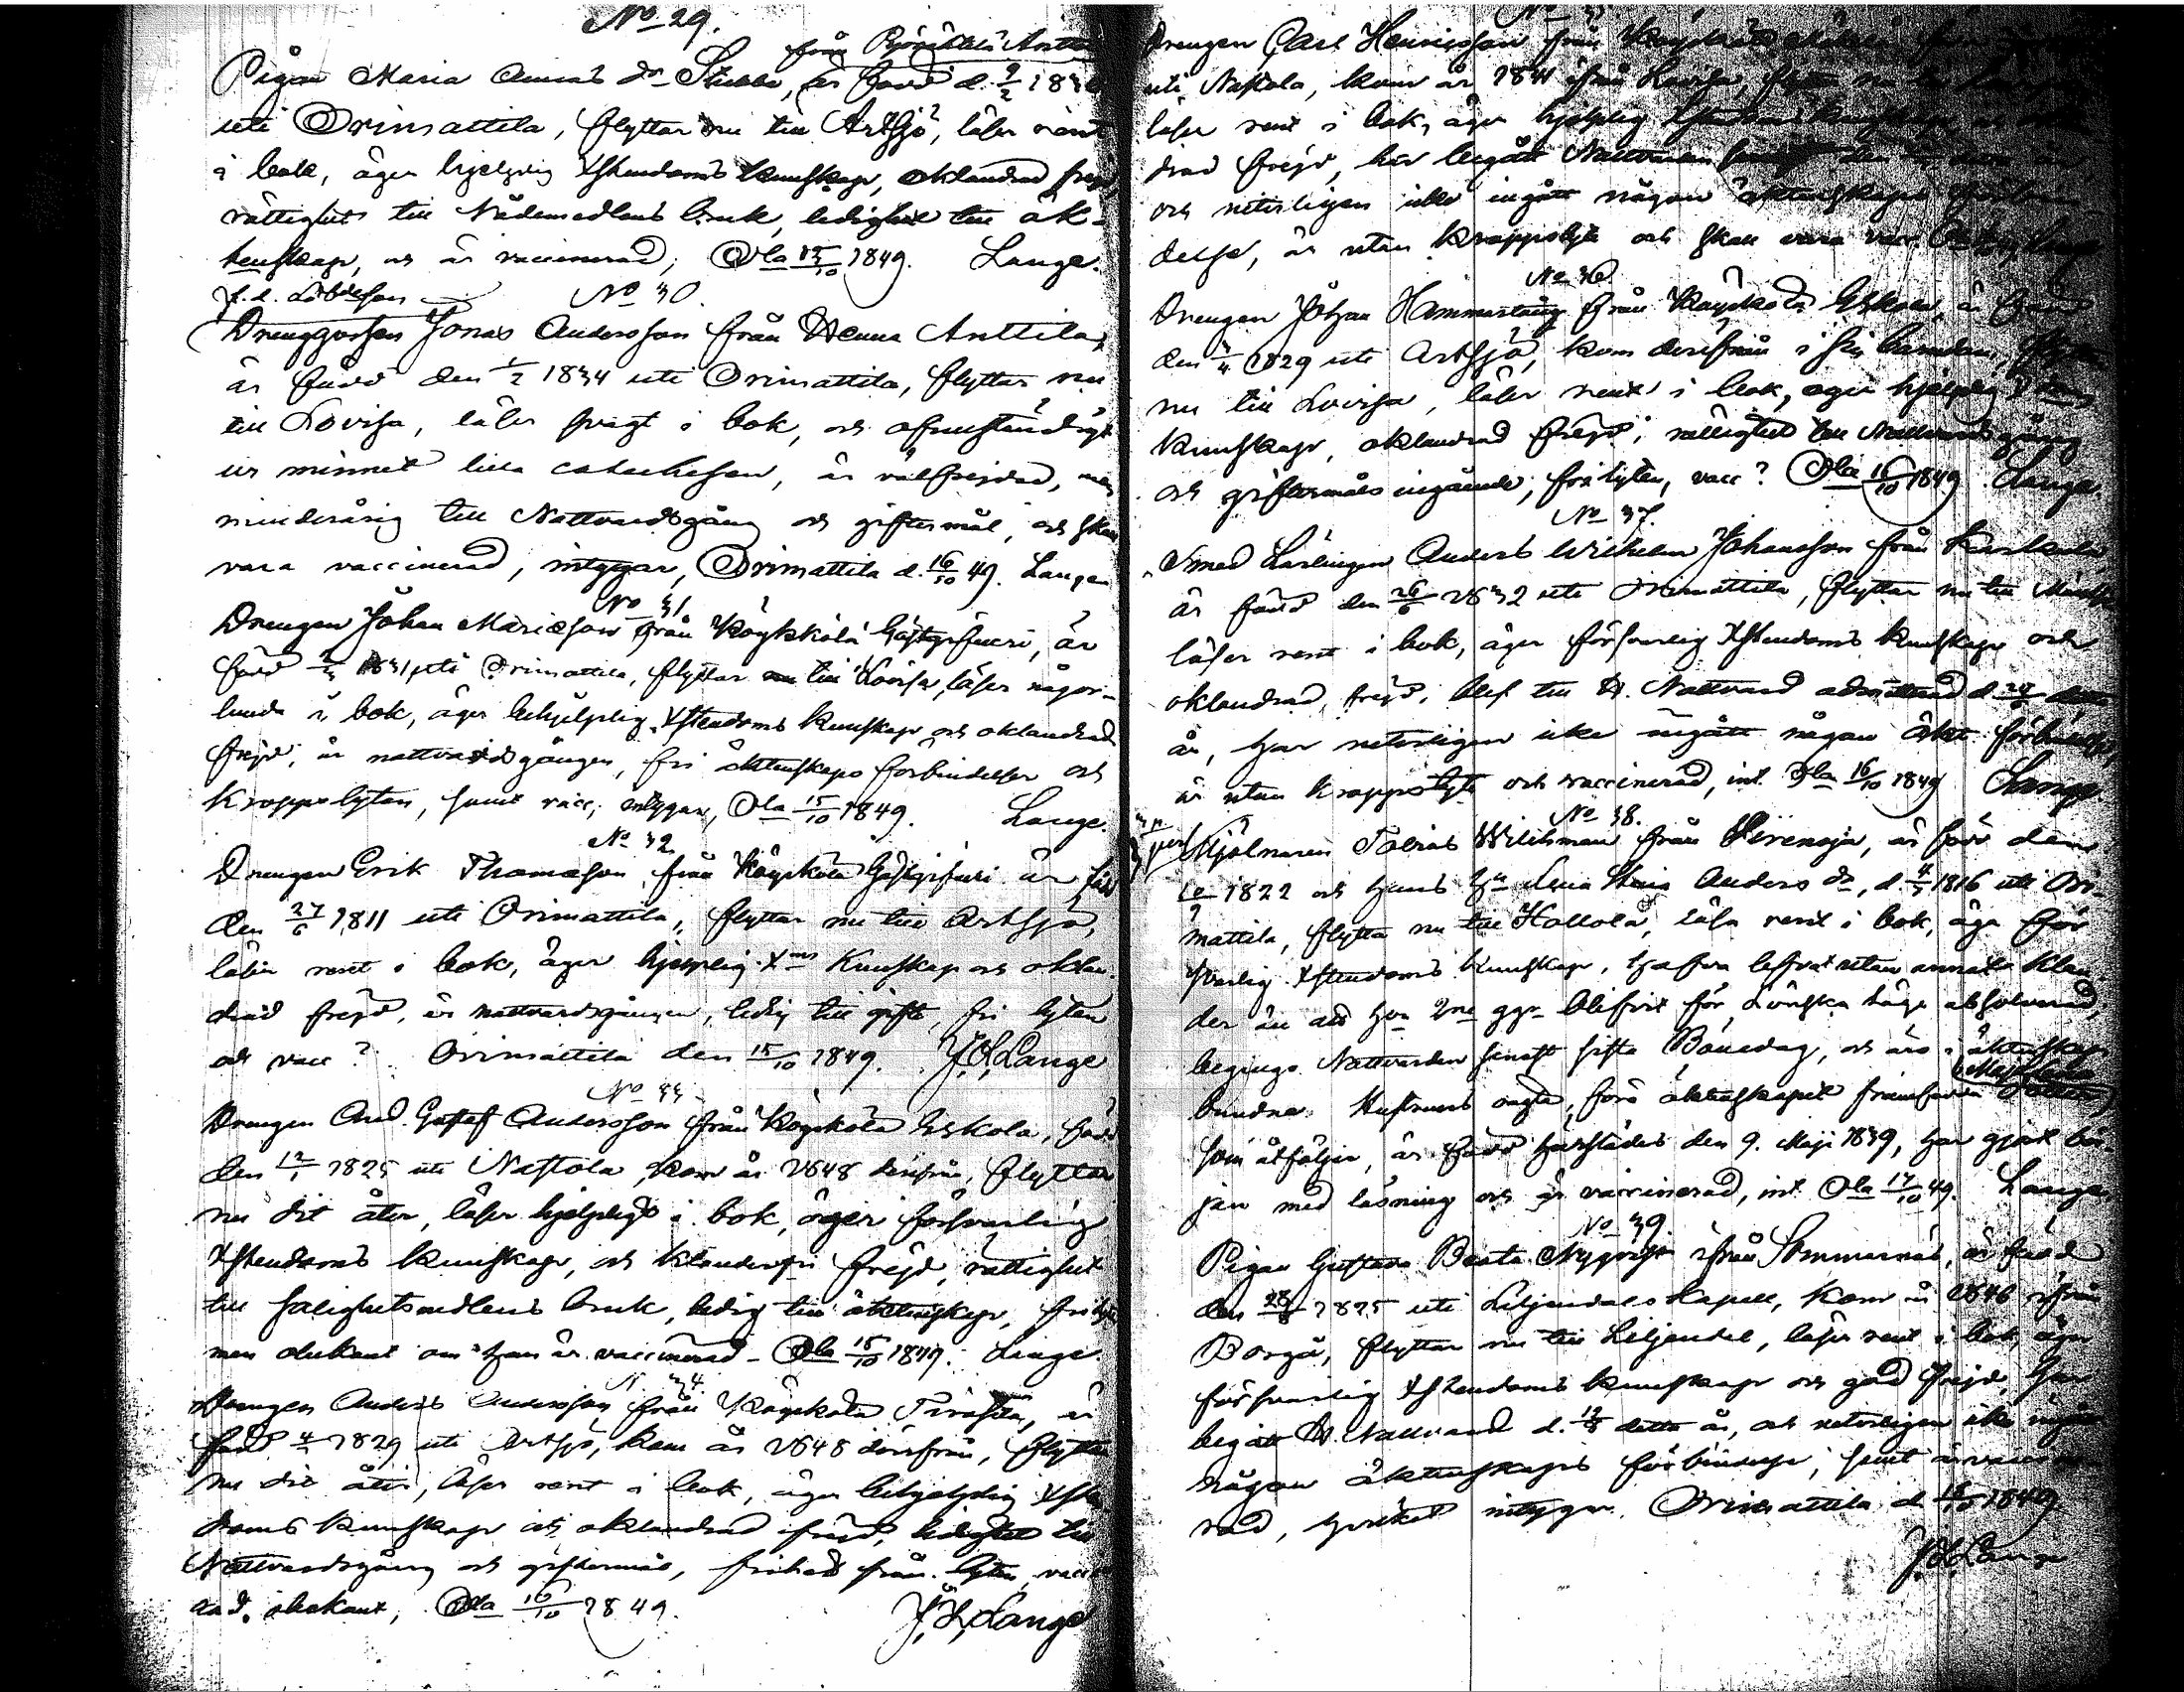 No 29.
från
Pigan Maria Anders dr Stubbe, är född d. 9/2 18
uti Orimattila, flyttar nu till Artsjö, läser rent
i bok, äger hjelplig Xstendoms kunskap, oklandrad frejd
rättighet till Nådemedlens bruk, ledighet till äk-
tenskap, och är vaccinerad; Ola 15/10 1849. Lange.
No 30.
Drenggossen Jonas Andersson från Henna Anttila,
är född den 1/2 1834 uti Orimattila, flyttar nu
till Lovisa, läser svagt i bok, och ofullständigt
ur minnet lilla catechesen, är välfrejdad, men
minderårig till Nattvardsgång och giftermål, och skall
vara vaccinerad, intygar, Orimattila d. 16/10 49. Lange
No 31.
Drengen Johan Mariæson från Köykkölä Gästgifveri, är
född 1831 uti Orimattila, flyttar nu till Lovisa, läser någor-
lunda i bok, äger behjelplig Xstendoms kunskap och oklandrad
frejd, är nattvardsgången, fri äktenskaps förbindelser och
kroppslyten, samt vacc; intygar, Ola 15/10 1849. Lange.
No 32
Drengen Erik Thomasson från Köyckölä Gästgifveri är född
den 27/6 1811 uti Orimattila, flyttar nu till Artsjö,
läser rent i bok, äger hjelplig Xms kunskap och oklan-
drad frejd, är nattvardsgången, ledig till gifte, fri lyten
och vacc? Orimattila den 15/10 1849. J.H.Lange
No 33
Drengen And. Gustaf Andersson från Köyckölä Eskola, född
den 12/1 1825 uti Nastola, kom år 1848 derifrån, flyttar
nu dit åter, läser hjelpligt i bok, äger försvarlig
Xstendoms kunskap, och klanderfri frejd, rättighet
till salighetsmedlens bruk, ledig till äktenskap, fri lyte
men obekant om han är vaccinerad - Ola 15/10 1849. Lange.
N 34
Drengen Anders Andersson från Köyckölä Pirttilä, är
född 4/ 1829 uti Artsjö, kom år 1848 derifrån, flyttar
nu dit åter, läser rent i bok, äger behjelplig Xsten
doms kunskap och oklandrad frejd, ledighet till
Nattvardsgång och giftermål, frihet från lyten, vacci
rad, obekant, Ola 16/10 1849. J.H.Lange
Drengen Carl Henricsson från Köyckölä
uti Nastola, kom år 1841 ifrån Lovisa, flyttar nu
läser rent i bok, äger hjelplig Xstendoms kunskap
drad frejd, har begått Nattvarden
och veterligen icke ingått någon äktenskaps förbin-
delse, är utan kroppslyte och skall vara vacc.
No 36
Drengen Johan Hammarberg från Köyckölä Eskola, är född
den /4 1829 uti Artsjö, kom derifrån i sin barndom, flyttar
nu till Lovisa, läser rent i bok, äger hjelplig
kunskap, oklandrad frejd, rättighet till Nattvardsgång
och giftermåls ingående, fri lyten, vacc? Ola 16/10 1849. Lange.
No 37.
Smeds Lärlingen Anders Wilhelm Johansson från
är född den 26/6 1832 uti Orimattila, flyttar nu till
läser rent i bok, äger försvarlig Xstendoms kunskap och
oklandrad frejd, blef till H. Nattvard admitterad d.
år, har veterligen icke ingått någon äkt. förbindelse,
är utan kroppslyte och vaccinerad, int. Ola 16/10 1849 Lange
No 38.
Mjölnaren Tobias från, är född den
1822 och hans hu Lena Stina Anders dr, d. 4/ 1816 uti Ori-
mattila, flytta nu till Hollola, läsa rent i bok, äga för
svarlig Xstendoms kunskap, hafva lefvat utan annat klan-
der än att hon 2ne ggr blifvit för lönska läge absolverad,
begingo Nattvarden senast sista Bönedag, och äro i äktenskap
bundna. Hustruns oägta, före äktenskapet framfödda
som åtföljer, är född härstädes den 9. Maji 1839, har gjort bör-
jan med läsning och är vaccinerad, int. Ola 17/10 49. Lange
No 39.
Pigan Gustava Beata Nyqvist ifrån Sommarnäs, är född
den 28/ 1825 uti Liljendals Kapell, kom år 1846 ifrån
Borgå, flyttar nu till Liljendal, läser rent i bok, äger
försvarlig Xstendoms kunskap och god frejd, har
begått H. Nattvard d. detta år, och veterligen icke ingått
någon äktenskaps förbindelse, samt är vaccine-
rad, hvilket intygar. Orimattila d. 1849
J.H.Lange